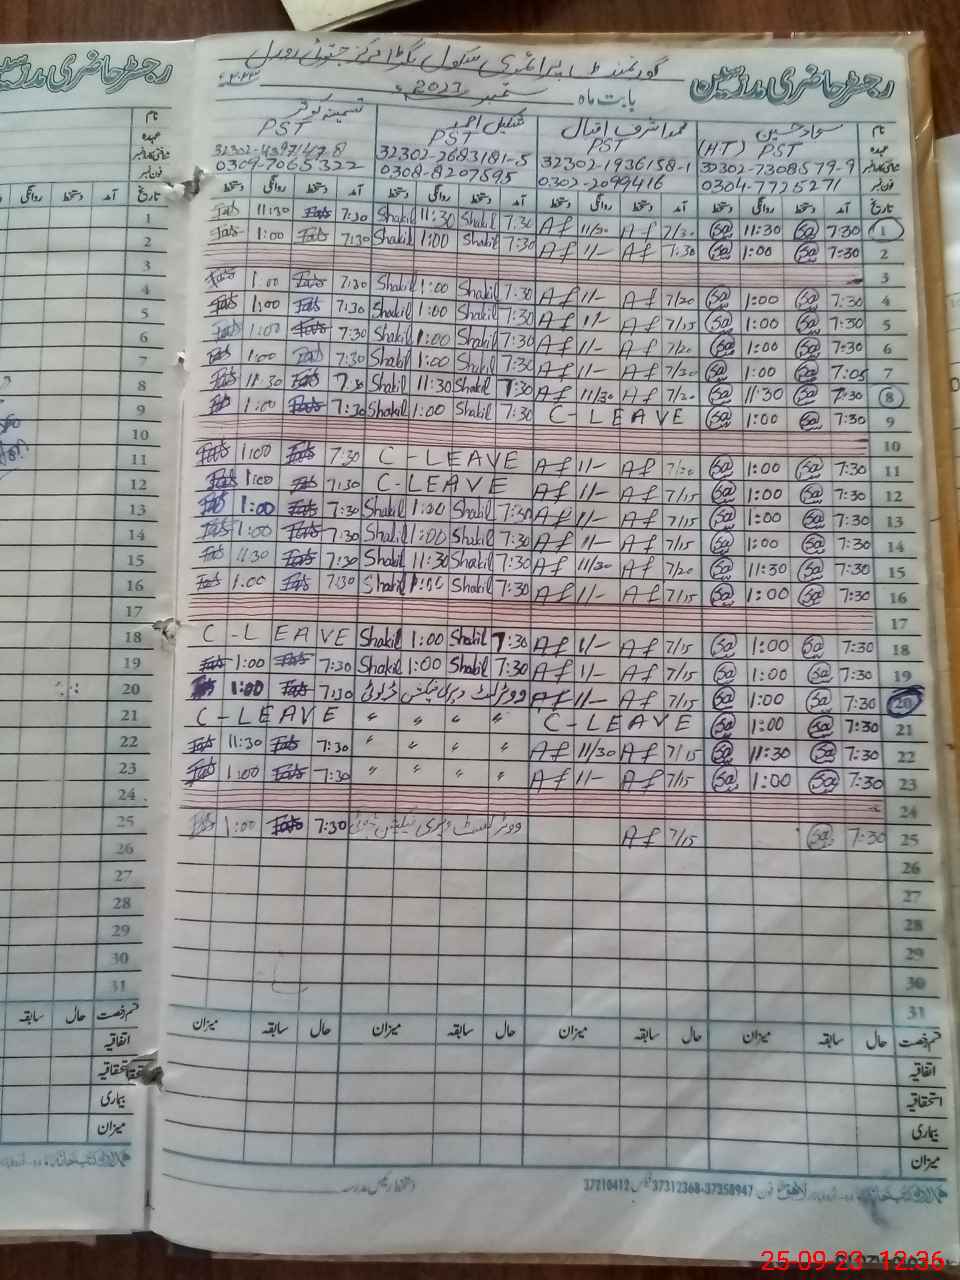 رجسٹر حاضری مدرسین
گورنمنٹ پرائمری سکول
بابت ماہ ستمبر 2023ء
نام سجاد حسین محمد اشرف اقبال شکیل احمد تسمینہ کوثر
عہدہ (H.T) PST PST PST PST
32302-7308579-9 32302-1936158-1 32302-2683181-5 32302-4397147-8
0304-7725271 0302-2099416 0308-8207595 0309-7065322
تاریخ آمد دستخط روانگی دستخط آمد دستخط روانگی دستخط آمد دستخط روانگی دستخط آمد دستخط روانگی دستخط
1 7:30 Sa 11:30 Sa 7/20 Af 11/30 Af 7:30 Shakil 11:30 Shakil 7:30 11:30
2 7:30 Sa 1:00 Sa 7:30 Af 1/- Af 7:30 Shakil 1:00 Shakil 7:30 1:00
3
4 7:30 Sa 1:00 Sa 7/20 Af 1/- Af 7:30 Shakil 1:00 Shakil 7:30 1:00
5 7:30 Sa 1:00 Sa 7/15 Af 1/- Af 7:30 Shakil 1:00 Shakil 7:30 1:00
6 7:30 Sa 1:00 Sa 7/20 Af 1/- Af 7:30 Shakil 1:00 Shakil 7:30 1:00
7 7:05 Sa 1:00 Sa 7/20 Af 1/- Af 7:30 Shakil 1:00 Shakil 7:30 1:00
8 7:30 Sa 11:30 Sa 7/20 Af 11/30 Af 7:30 Shakil 11:30 Shakil 11:30
9 7:30 Sa 1:00 Sa C-LEAVE 7:30 Shakil 1:00 Shakil 7:30 1:00
10
11 7:30 Sa 1:00 Sa 7/20 Af 1/- Af C-LEAVE 7:30 1:00
12 7:30 Sa 1:00 Sa 7/15 Af 1/- Af C-LEAVE 7:30 1:00
13 7:30 Sa 1:00 Sa 7/15 Af 1/- Af 7:30 Shakil 1:00 Shakil 7:30 1:00
14 7:30 Sa 1:00 Sa 7/15 Af 1/- Af 7:30 Shakil 1:00 Shakil 7:30 1:00
15 7:30 Sa 11:30 Sa 7/20 Af 11/30 Af 7:30 Shakil 11:30 Shakil 7:30 11:30
16 7:30 Sa 1:00 Sa 7/15 Af 1/- Af 7:30 Shakil 1:00 Shakil 7:30 1:00
17
18 7:30 Sa 1:00 Sa 7/15 Af 1/- Af 7:30 Shakil 1:00 Shakil C-LEAVE
19 7:30 Sa 1:00 Sa 7/15 Af 1/- Af 7:30 Shakil 1:00 Shakil 7:30 1:00
20 7:30 Sa 1:00 Sa 7/15 Af 1/- Af ووٹر لسٹ ویری فیکیشن ڈیوٹی 7:30 1:00
21 7:30 Sa 1:00 Sa C-LEAVE " " " " C-LEAVE
22 7:30 Sa 11:30 Sa 7/15 Af 11/30 Af " " " " 7:30 11:30
23 7:30 Sa 1:00 Sa 7/15 Af 1/- Af " " " " 7:30 1:00
24
25 7:30 Sa 7/15 Af ووٹر لسٹ ویری فیکیشن ڈیوٹی 7:30 1:00
26
27
28
29
30
31
قسم رخصت حال سابقہ میزان حال سابقہ میزان حال سابقہ میزان حال سابقہ میزان
اتفاقیہ
استحقاقیہ
بیماری
میزان
37210412 37312368-37358947
25-09-23 12:36